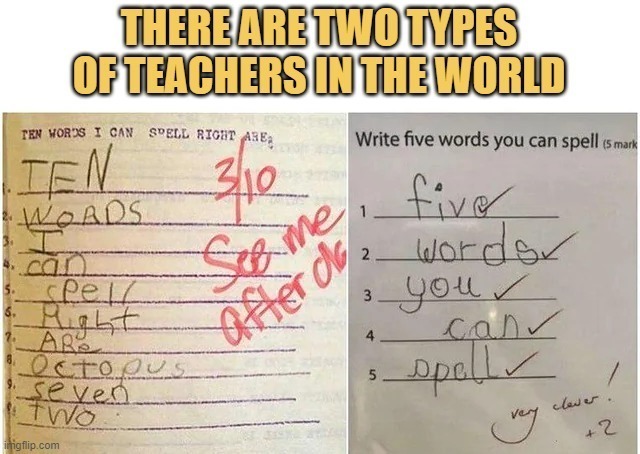 THERE ARE TWO TYPES
OF TEACHERS IN THE WORLD
TEN WORDS I CAN SPELL RIGHT ARE:
TEN
2. WORDS
3. I
4. can
5. spell
6. Right
7. ARe
8. Octopus
9. seven
two
3/10
See me
after
Write five words you can spell (5 mark
1 five
2 words
3 you
4 can
5 spell
very clever!
+2
imgflip.com